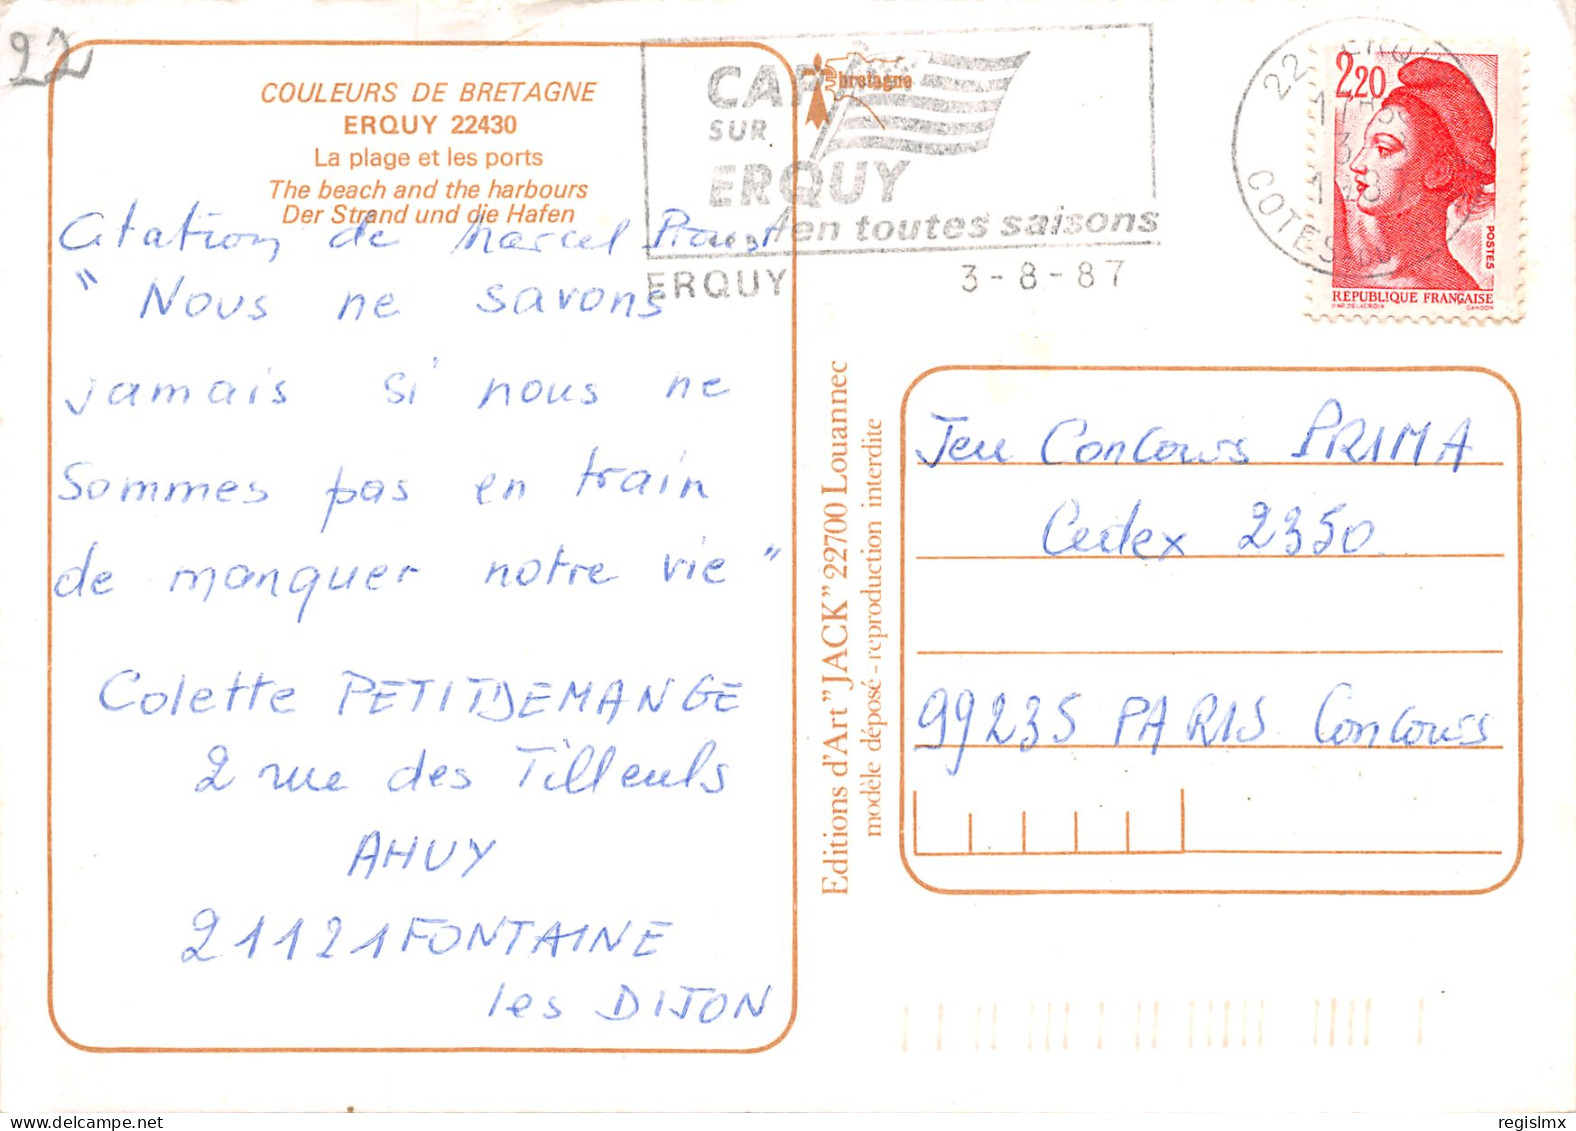 22
COULEURS DE BRETAGNE
ERQUY 22430
La plage et les ports
The beach and the harbours
Der Strand und die Hafen
Citation de Marcel Proust
" Nous ne savons
jamais si nous ne
sommes pas en train
de manquer notre vie "
Colette PETITDEMANGE
2 rue des Tilleuls
AHUY
21121 FONTAINE
les DIJON
bretagne
CAP
SUR
ERQUY
en toutes saisons
ERQUY 3-8-87
22 ERQUY
COTES
2,20
POSTES
REPUBLIQUE FRANÇAISE
D'AP. DELACROIX GANDON
Editions d'Art "JACK" 22700 Louannec
modèle déposé - reproduction interdite
Jeu Concours PRIMA
Cedex 2350
99235 PARIS Concours
regislmx